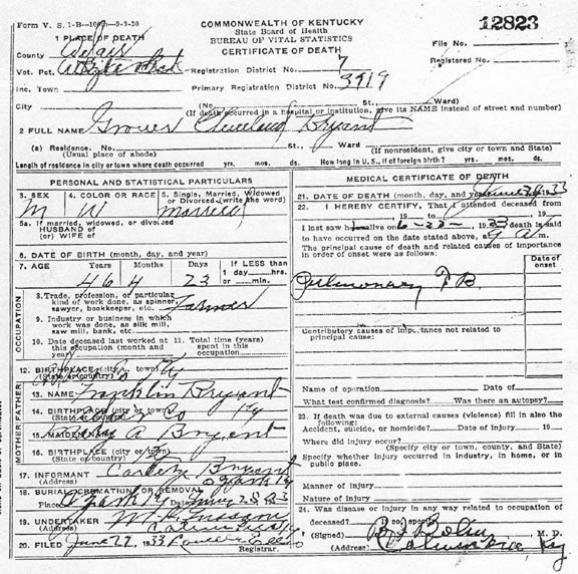 Form V. S. 1-B
COMMONWEALTH OF KENTUCKY
State Board of Health
BUREAU OF VITAL STATISTICS
CERTIFICATE OF DEATH
12823
File No.
Registered No.
1 PLACE OF DEATH
County Adair
Vot. Pct.
Registration District No. 7
Inc. Town
Primary Registration District No. 3919
City (No. St. Ward)
(If death occurred in a hospital or institution, give its NAME instead of street and number)
2 FULL NAME Grover Cleveland Bryant
(a) Residence. No. St., Ward
(Usual place of abode) (If nonresident, give city or town and State)
Length of residence in city or town where death occurred yrs. mos. ds. How long in U. S., if of foreign birth? yrs. mos. ds.
PERSONAL AND STATISTICAL PARTICULARS
3. SEX 4. COLOR OR RACE 5. Single, Married, Widowed
or Divorced (write the word)
M W married
5a. If married, widowed, or divorced
HUSBAND of
(or) WIFE of
6. DATE OF BIRTH (month, day, and year)
7. AGE Years Months Days If LESS than
1 day hrs.
or min.
46 4 23
OCCUPATION
8. Trade, profession, or particular
kind of work done, as spinner,
sawyer, bookkeeper, etc. Farmer
9. Industry or business in which
work was done, as silk mill,
saw mill, bank, etc.
10. Date deceased last worked at
this occupation (month and
year)
11. Total time (years)
spent in this
occupation
12. BIRTHPLACE (city or town)
(State or country) Ky
MOTHER FATHER
13. NAME Franklin Bryant
14. BIRTHPLACE (city or town)
(State or country) Co Ky
15. MAIDEN NAME A Bryant
16. BIRTHPLACE (city or town)
(State or country)
17. INFORMANT Bryant
(Address) Ozark Ky
18. BURIAL, CREMATION OR REMOVAL
Ozark
19. UNDERTAKER
(Address)
20. FILED June 27 1933
Registrar.
MEDICAL CERTIFICATE OF DEATH
21. DATE OF DEATH (month, day, and year) 33
22. I HEREBY CERTIFY, That I attended deceased from
19 to 19
I last saw h alive on 6-22- 1933 death is said
to have occurred on the date stated above, at 9 A m.
The principal cause of death and related causes of importance
in order of onset were as follows:
Date of
onset
Pulmonary T B.
Contributory causes of importance not related to
principal cause:
Name of operation Date of
What test confirmed diagnosis? Was there an autopsy?
23. If death was due to external causes (violence) fill in also the
following:
Accident, suicide, or homicide? Date of injury 19
Where did injury occur?
(Specify city or town, county, and State)
Specify whether injury occurred in industry, in home, or in
public place.
Manner of injury
Nature of injury
24. Was disease or injury in any way related to occupation of
deceased?
If so, specify
(Signed) M. D.
(Address) Ky